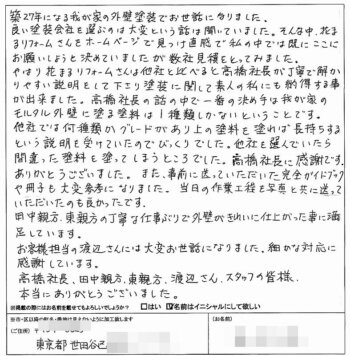 築27年になる我が家の外壁塗装でお世話になりました。
良い塗装会社を選ぶのは大変という話は聞いていました。そんな中、花ま
まりフォームさんをホームページで見つけ直感で私の中では既にここに
お願いしようと決めていましたが数社見積をとってみました。
やはり花まるリフォームさんは他社と比べると高橋社長が丁寧で解か
りやすい説明をして下さり塗装に関して素人の私にも納得する事
が出来ました。高橋社長の話の中で一番の決め手は我が家の
モルタル外壁に塗る塗料は1種類しかないということです。
他社では何種類かグレードがあり上の塗料を塗れば長持ちする
という説明を受けていたのでびっくりでした。他社を選んでいたら
間違った塗料を塗ってしまうところでした。高橋社長に感謝です。
ありがとうございました。また、事前に送っていただいた完全ガイドブック
や冊子も大変参考になりました。当日の作業工程を写真と共に送って
いただいたのも良かったです。
田中親方、東親方の丁寧な仕事ぶりで外壁がきれいに仕上がった事に満
足しています。
お客様担当の渡辺さんには大変お世話になりました。細かな対応に
感謝しています。
高橋社長、田中親方、東親方、渡辺さん、スタッフの皆様、
本当にありがとうございました。
※掲載する際にお名前を載せてもよろしいでしょうか？ □はい ☑名前はイニシャルにして欲しい
〈ご住所〉 〒
東京都 世田谷区
〈お名前〉